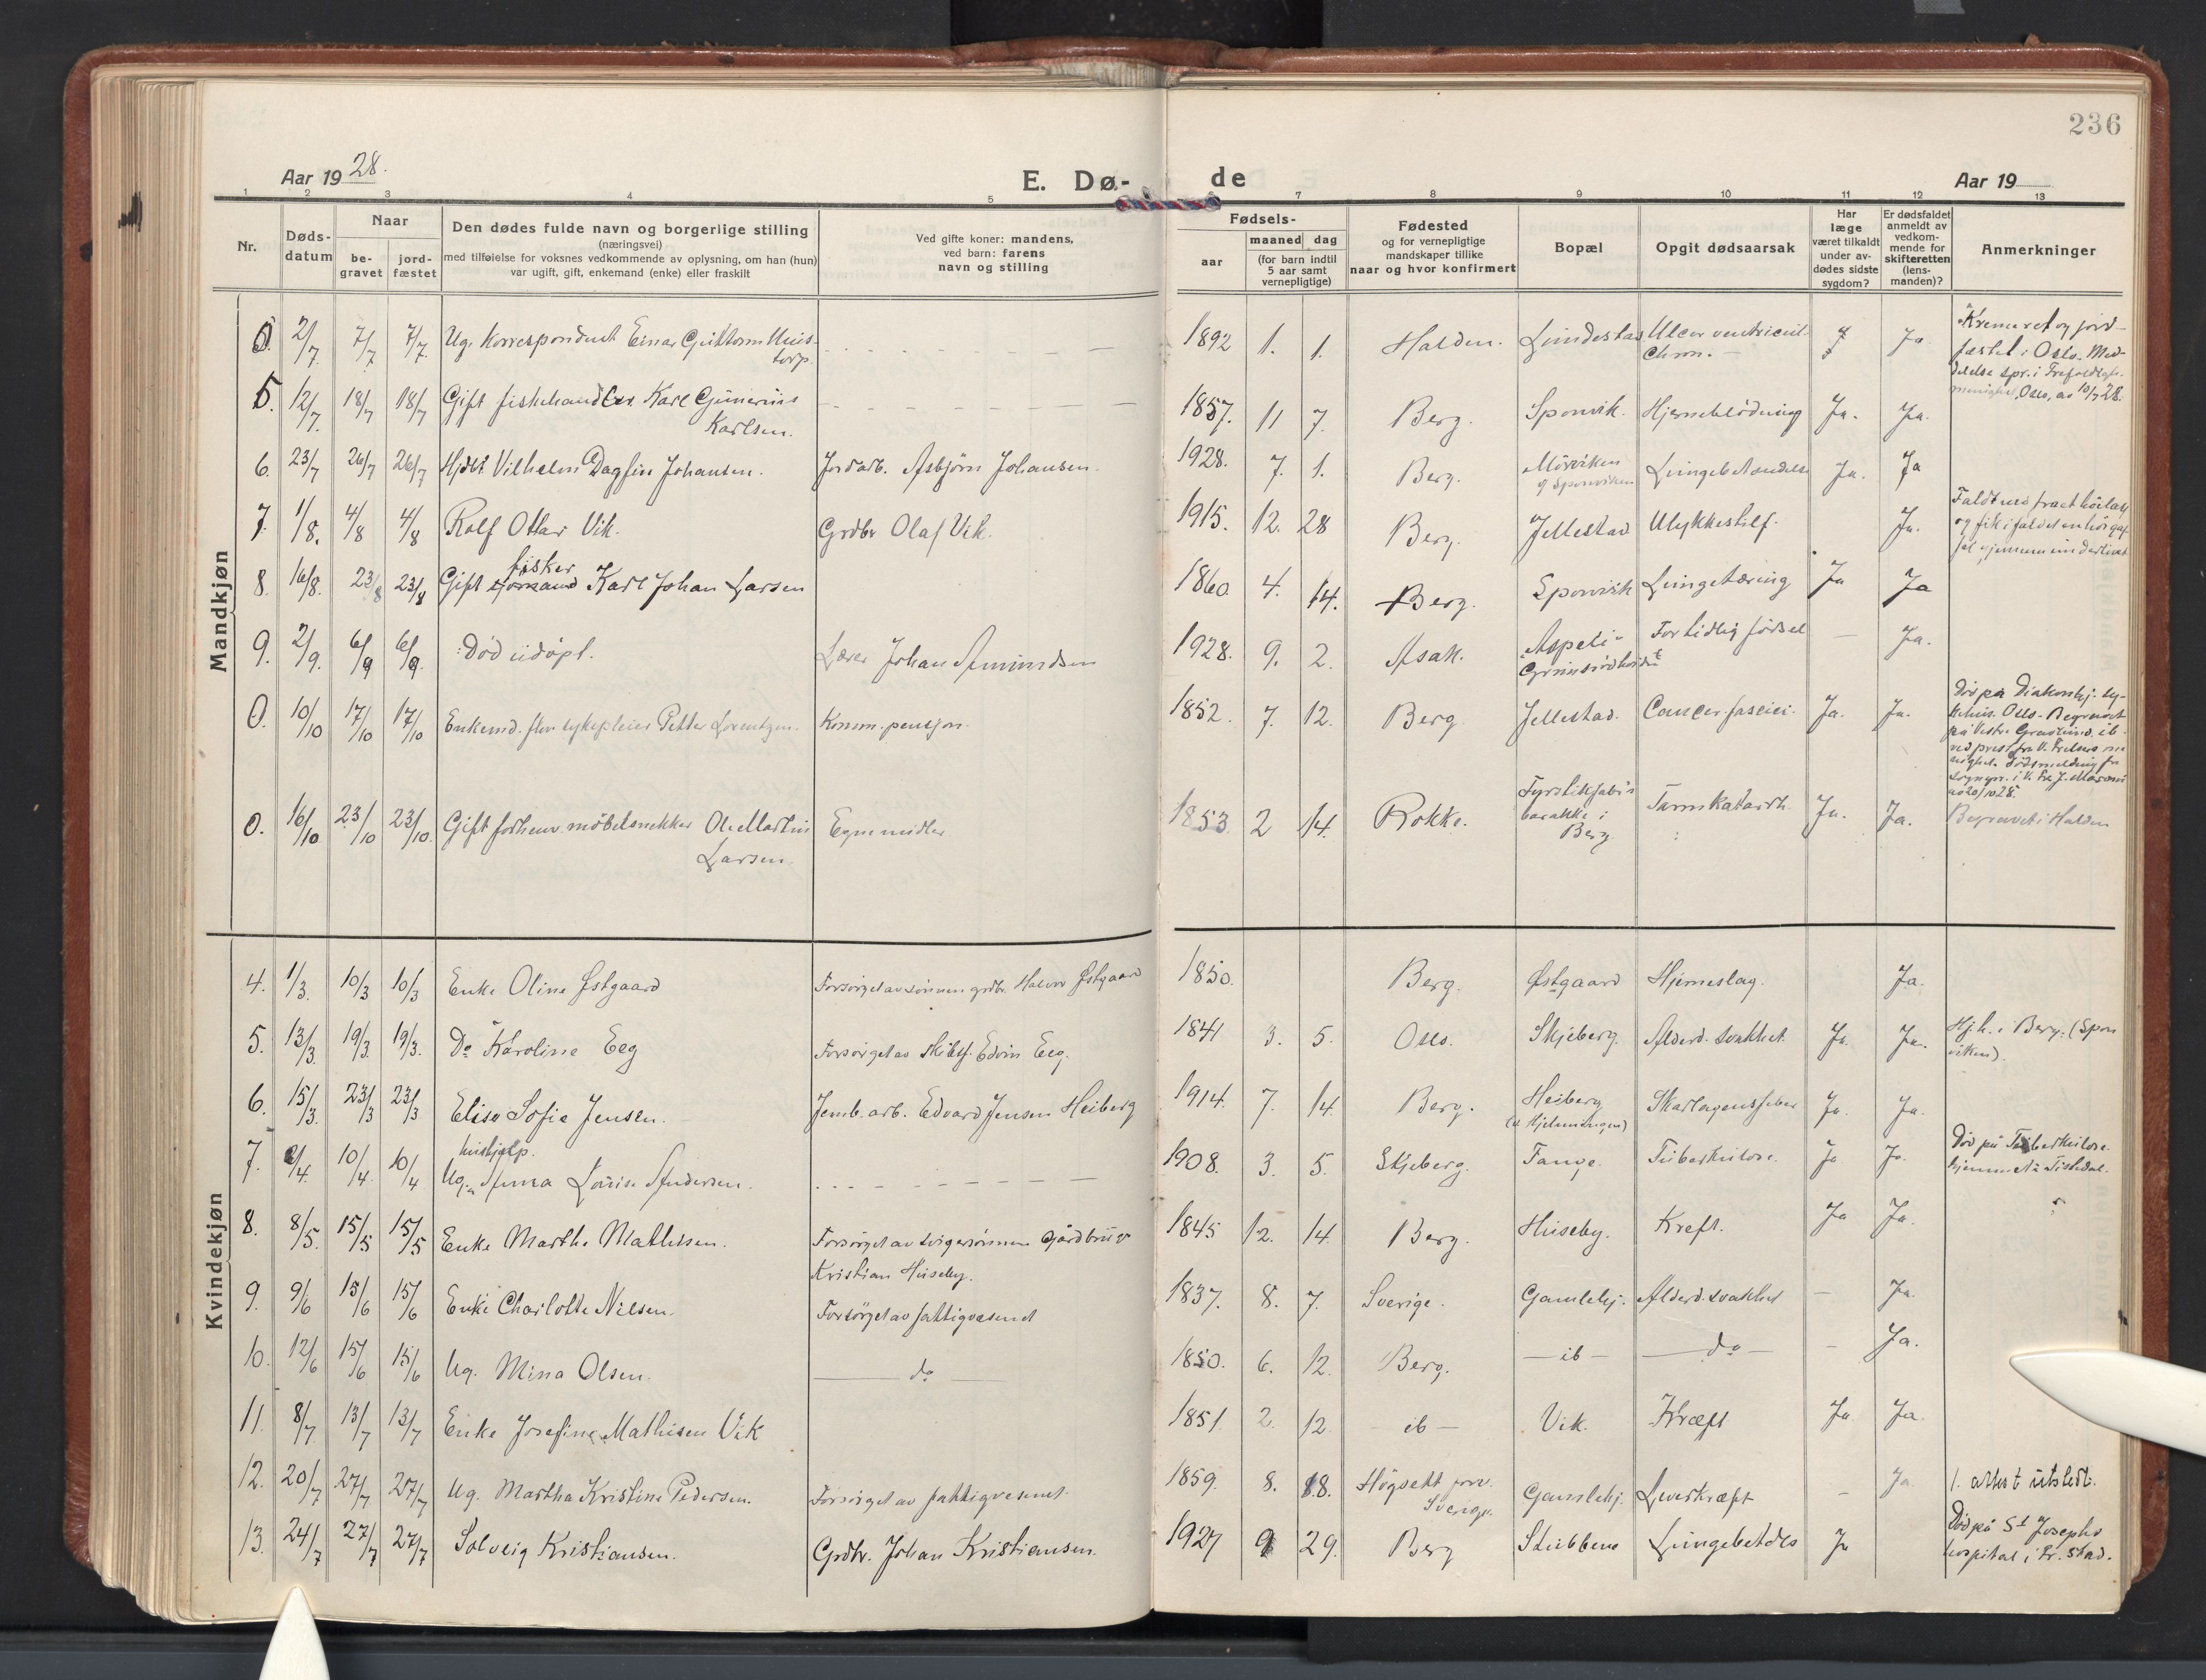 236
Aar 19 28.
E. Dø-
de
Aar 19
1 2 3 4 5 7 8 9 10 11 12 13
Nr.
Døds-
datum
Naar
be-
gravet
jord-
fæstet
Den dødes fulde navn og borgerlige stilling
(næringsvei)
med tilføielse for voksnes vedkommende av oplysning, om han (hun)
var ugift, gift, enkemand (enke) eller fraskilt
Ved gifte koner: mandens,
ved barn: farens
navn og stilling
Fødsels-
aar
maaned dag
(for barn indtil
5 aar samt
vernepligtige)
Fødested
og for vernepligtige
mandskaper tillike
naar og hvor konfirmert
Bopæl
Opgit dødsaarsak
Har
læge
været tilkaldt
under av-
dødes sidste
sygdom?
Er dødsfaldet
anmeldt av
vedkom-
mende for
skifteretten
(lens-
manden)?
Anmerkninger
Mandkjøn
0. 2/7. 7/7 7/7. Ug. Korrespondent Einar Guttorm 1892 1. 1. Halden. Lundestad Ulcer ventricul. Ja
torp. chron. -
Kremeret og jord-
fæstet i Oslo. Med-
delelse spr. i
Oslo, av 10/7 28.
5. 12/7. 18/7 18/7 Gift fiskehandler Karl Gunerius 1857. 11 7. Berg. Sponvik. Hjerneblödning Ja. Ja.
Karlsen.
6. 23/7 26/7 26/7 Vilhelm Dagfin Johansen. Jordarb. Asbjörn Johansen. 1928. 7. 1. Berg. Lungebetændelse Ja. Ja
7. 1/8. 4/8 4/8 Rolf Ottar Vik. Grdbr Olaf Vik. 1915. 12. 28 Berg. Jellestad Ulykkestilf. Ja.
Faldt ned fra et höilass
og fik i faldet en höigaf-
fel gjennem underlivet
fisker
8. 16/8. 23/8 23/8 Gift Karl Johan Larsen 1860. 4. 14. Berg. Sponvik Lungetæring Ja Ja
9. 2/9. 6/9 6/9. Död udöpt. Lærer Johan Amundsen 1928. 9. 2. Asak. Aspeli- For tidlig födsel — Ja.
0. 10/10 17/10 17/10 Enkemd. fhv. sykepleier Petter Lorentzen. Komm. pension. 1852. 7. 12. Berg. Jellestad. Cancer fasciei. Ja. Ja.
Död på Diakonhj. sy-
kehus. Oslo. Begravet
på Vestre Gravlund. ib
ved prest fra V. Frelsers me
nighet. Dödsmelding fra
av 20/10 28.
0. 16/10 23/10 23/10. Gift forhenv. möbelsnekker Ole Martin Egne midler 1853 2 14. Rokke. Tarmkatarrh. Ja. Ja. Begravet i Halden
Larsen
barakke i
Berg
Kvindekjøn
4. 1/3. 10/3 10/3 Enke Oline Østgaard Forsörget av sönnen grdbr. Halvor Østgaard 1850. Berg. Østgaard Hjerneslag. Ja.
5. 13/3. 19/3. 19/3. Do Karoline Eeg Forsörget av skibsf. Edvin Eeg. 1841 3. 5. Oslo. Skjeberg. Alderd. svakhet. Ja. Ja. Hjh. i Berg. (Spon
viken).
6. 15/3. 23/3 23/3 Elise Sofie Jensen. Jernb. arb. Edvard Jensen Heiberg 1914. 7. 14. Berg. Heiberg Skarlagensfeber Ja. Ja.
hushjelp.
7. 2/4. 10/4 10/4 Ug. Anna Lovise Andersen. 1908. 3. 5. Skjeberg. Tange. Tuberkulose. Ja Ja. Död på Tuberkulose
hjemmet i Tistedal.
8. 8/5. 15/5 15/5 Enke Marthe Mathisen. Forsörget av svigersönnen gårdbruker 1845 12. 14. Berg. Huseby. Kreft. Ja Ja.
Kristian Huseby.
9. 9/6 15/6 15/6 Enke Charlotte Nilsen. Forsörget av fattigvæsenet 1837. 8. 7. Sverige. Gamlehj. Alderd. svakhet — Ja.
10. 12/6 15/6 15/6 Ug. Mina Olsen. — do — 1850. 6. 12. Berg. — ib — — do — — Ja.
11. 8/7 13/7 13/7 Enke Josefine Mathisen Vik 1851. 2. 12 ib — Vik. Kræft Ja Ja.
12. 20/7 27/7 27/7 Ug. Martha Kristine Pedersen. Forsörget av fattigvesenet. 1859. 8. 18. Högsett Gamlehj. Leverkræft — Ja 1. attest utstedt.
Sverige.
13. 24/7 27/7 27/7 Solveig Kristiansen. Grdbr. Johan Kristiansen. 1927 9 29. Berg Stubbene Lungebetdls Ja Död på St Josephs
hospital i Fr.stad.